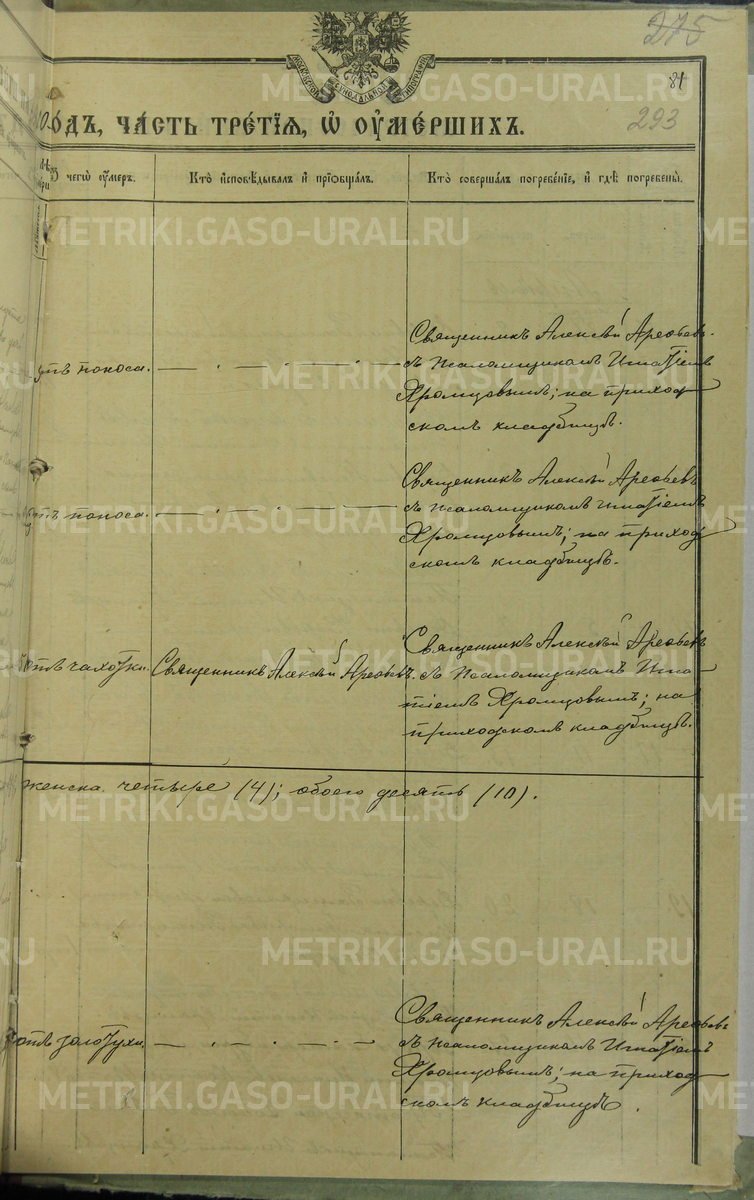 275
81
293
МОСКОВСКОЙ СѴНОДАЛЬНОЙ ТИПОГРАФІИ
одъ, ча́сть тре́тїѧ, ѡ҆ ᲂу҆ме́ршихъ.
чегѡ̀ ᲂу҆́меръ.
Кто̀ и҆сповѣ́дывалъ и҆ прїѡбща́лъ.
Кто̀ соверша́лъ погребе́нїе, и҆ гдѣ̀ погребены̀.
отъ поноса.
Священникъ Алексѣй Арефьевъ
съ псаломщикомъ Игнатіемъ
Хромцовымъ; на приход
скомъ кладбищѣ.
отъ поноса.
Священникъ Алексѣй Арефьевъ
съ псаломщикомъ Игнатіемъ
Хромцовымъ; на приход
скомъ кладбищѣ.
отъ чахотки.
Священникъ Алексѣй Арефьевъ.
Священникъ Алексѣй Арефьевъ
съ псаломщикомъ Игна
тіемъ Хромцовымъ; на
приходскомъ кладбищѣ.
женска четыре (4); обоего десять (10).
отъ золотухи.
Священникъ Алексѣй Арефьевъ
съ псаломщикомъ Игнатіемъ
Хромцовымъ; на приход
скомъ кладбищѣ.
METRIKI.GASO-URAL.RU